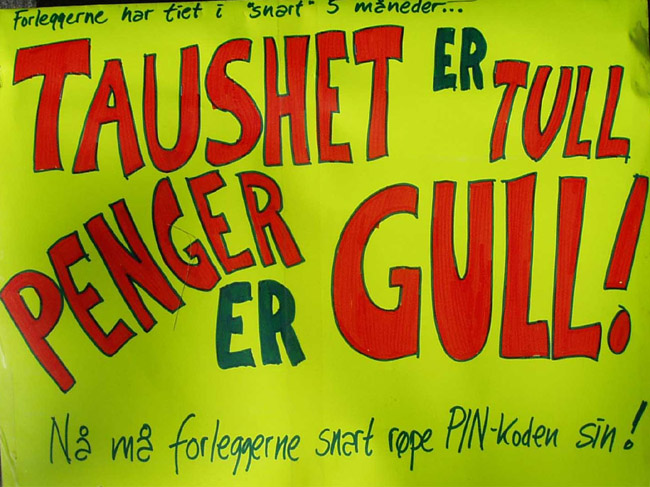 Forleggerne har tiet i "snart" 5 måneder...
TAUSHET ER TULL
PENGER ER GULL!
Nå må forleggerne snart røpe PIN-Koden sin!